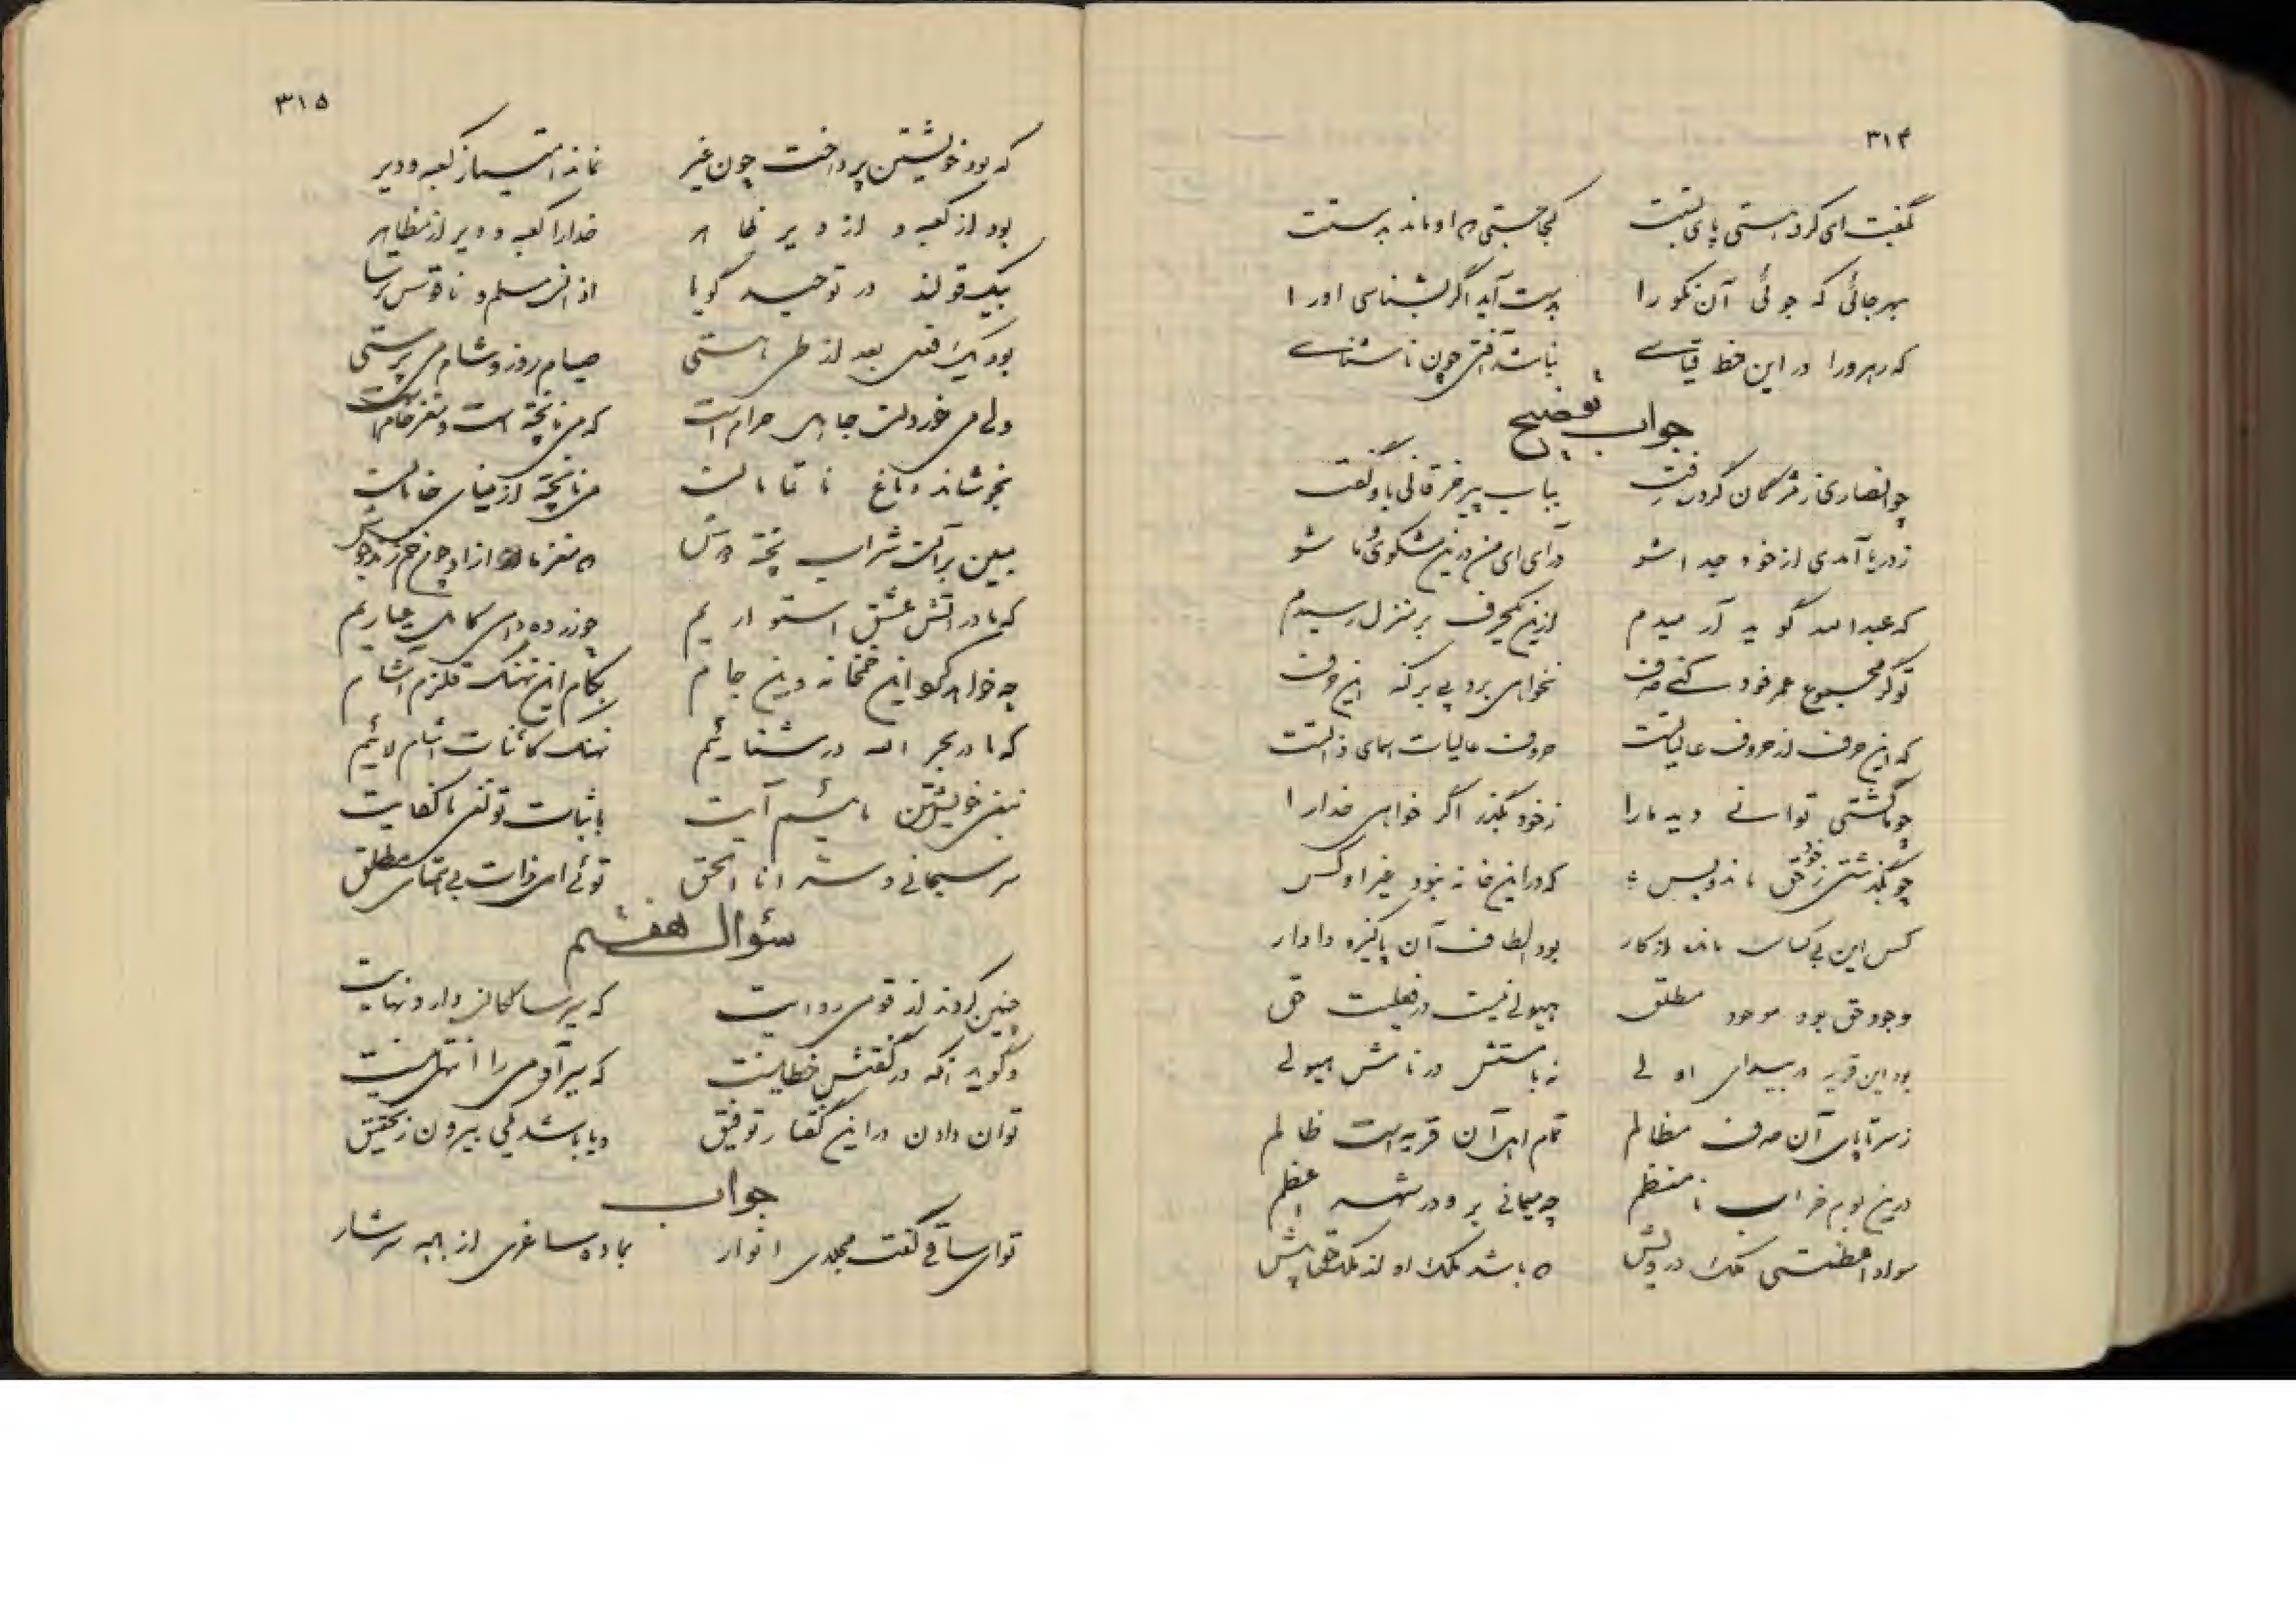 ۳۱۴
بگفت ای کرد هستی پای بستت کجا جستی که او ناید بدستت
بهر جائی که جوئی آن نکو را بدست آید اگر بشناسی او را
که رهرو را در این خط قیاسی نباشد آفتی چون ناشناسی
جواب بتوضیح
چو انصاری ز مژگان گرد ره رفت بباب پیر خرقانی باو گفت
ز دریا آمدی از خود جدا شو درآی ای من درین مشکوی و ما شو
که عبدالله گوید آرمیدم ازین یکحرف بر منزل رسیدم
تو گر مجموع عمر خود کنی صرف نخواهی برد پی بر کنه این حرف
که این حرف از حروف عالیاتست حروف عالیات اسمای ذاتست
چو ما گشتی توانی دید ما را ز خود بگذر اگر خواهی خدا را
چو بگذشتی ز خود حق ماند و بس که در این خانه نبود غیر او کس
کس این بی کسان مانده از کار بود الطاف آن پاکیزه دادار
وجود حق بود موجود مطلق هیولی نیست در فعلیت حق
بود این قریه در بیدای اولی نه باستش در نامش هیولی
ز سر تا پای آن صرف مظالم تمام اهل آن قریه است ظالم
درین بوم خراب نامنظم چه میمانی برو در شهر اعظم
سواد اعظمستی ملک درویش که باشد ملک او از ملک حق بیش
۳۱۵
که بود خویشتن پرداخت چون غیر نماند امتیاز کعبه و دیر
بود از کعبه و از دیر ظاهر خدا را کعبه و دیر از مظاهر
بیک قولند در توحید گویا اذان مسلم و ناقوس ترسا
بود یک فعل بعد از طی هستی صیام روز و شام می پرستی
ولی می خوردن جاهل حرام است که می ناپخته است و مغز خام است
بخوشاند دماغ ناتمامان می ناپخته از مینای خامان
ببین بر آتش شراب پخته در
که ما در آتش عشق استواریم چو زر ده دهی کامل عیاریم
چه خواهد کرد این خمخانه و این جام بکام این نهنگ قلزم آشام
که ما در بحر الله در شنائیم نهنگ کائنات آشام لائیم
بنفی خویشتن مائیم آیت باثبات تو نفی ما کفایت
سر سبحانی و سر انا الحق توئی ای ذات بی همتای مطلق
سؤال هفتم
چنین کردند از قومی روایت که سیر سالکان دارد نهایت
دگر گوید آنکه در گفتش خطا نیست که سیر آدمی را انتها نیست
توان دادن در این گفتار توفیق و یا باشد یکی بیرون ز تحقیق
جواب
تو ای ساقی گفت مجلی انوار بماده ساغری از باده سرشار